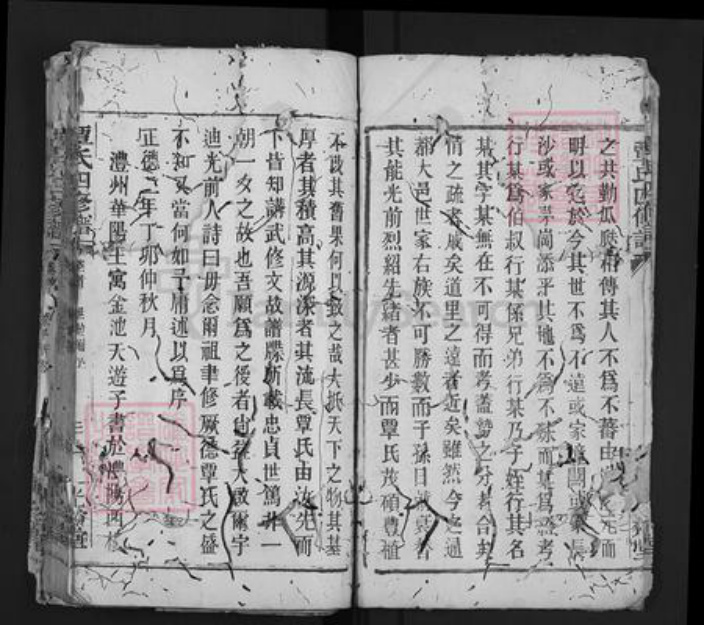 之共勤瓜瓞相傳其人不爲不蕃由
明以迄於今其世不爲不遠或家
沙或家添平其地不爲不殊而某爲
行某爲伯叔行某係兄弟行某乃子姪行其名
某其字某無在不可得而考蓋勢之分者合矣
情之疏者戚矣道里之遠者近矣雖然今之通
都大邑世家右族不可勝數而子孫日就
其能光前烈紹先緒者甚少而覃氏茂碩豊
不改其舊果何以致之哉大抵天下之物其基
厚者其積高其源深者其流長覃氏由汝先而
下皆知講武修文故譜牒所載忠貞世篤非一
朝一夕之故也吾願爲之後者尚克大啟爾宇
迪光前人詩曰毋念爾祖聿修厥德覃氏之盛
不知又當何如于庸述以爲序
正德二年丁卯仲秋月
澧州華陽王寓金池天遊子書於澧陽西
覃氏四修譜